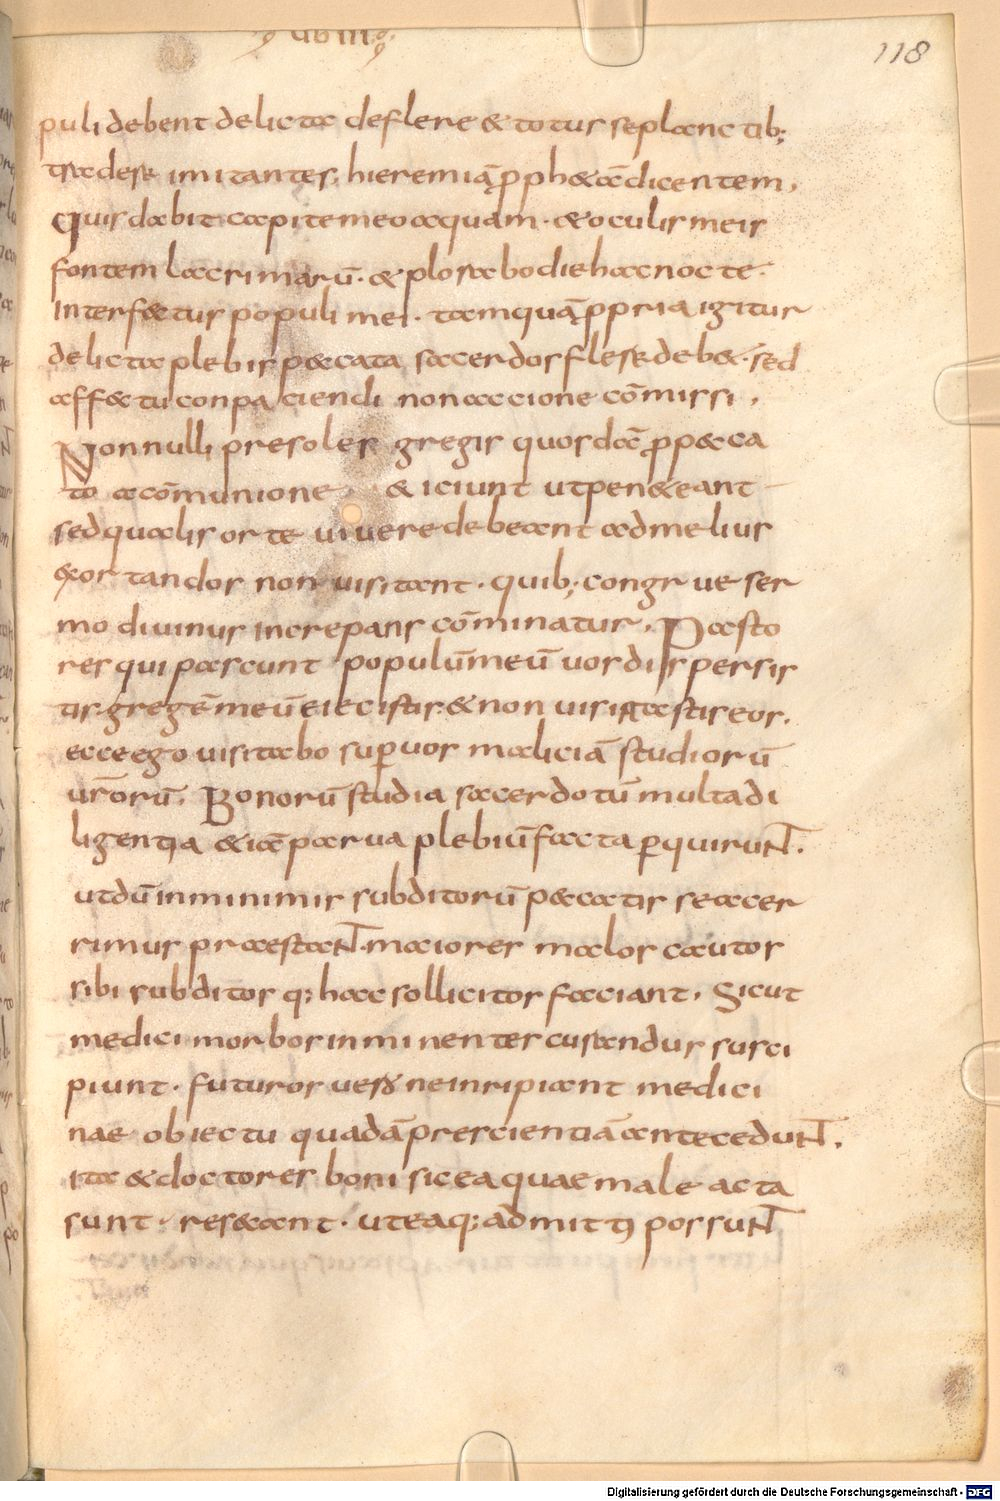 118
puli debent delicta deflere & totus se planctib;
tradere imitantes; hieremiā p̄ph&ā dicentem,
Quis dabit capite meo aquam · & oculis meis
fontem lacrimarū · & plorabo die hac nocte ·
interfectus populi mei · tamquā p̄pria igitur
delicta plebis peccata sacerdos flere deb& · sed
aff&tu conpaciendi non accione cōmissi,
Nonnulli presoles gregis quosdā p̄ pecca
to a cōmunione &iciunt ut pen&eant
sed qualis orte vivere debeant ad melius
&ortandos non visitant · quib; congrue ser
mo divinus increpans cōminatur, Pasto
res qui pascunt populū meū vos dispersis
tis gregē meū eiecistis & non visitastis eos,
ecce ego visitabo sup vos maliciā studiorū
vr̄orū, Bonorū studia sacerdotū multa di
ligentia &iā parva plebiū facta pquirunt.
ut dū in minimis subditorū peccatis se acer
rimus praestant maiores malos cautos
sibi subditos q; hac sollicitos faciant, Sicut
medici morbos inminentes curandus susci
piunt · futuros vero ne inripiant medici
nae obiectu quadā prescientiā antecedunt.
Ita & doctores boni sic ea quae male acta
sunt · resecant · ut ea q; admitti possunt
Digitalisierung gefördert durch die Deutsche Forschungsgemeinschaft - DFG